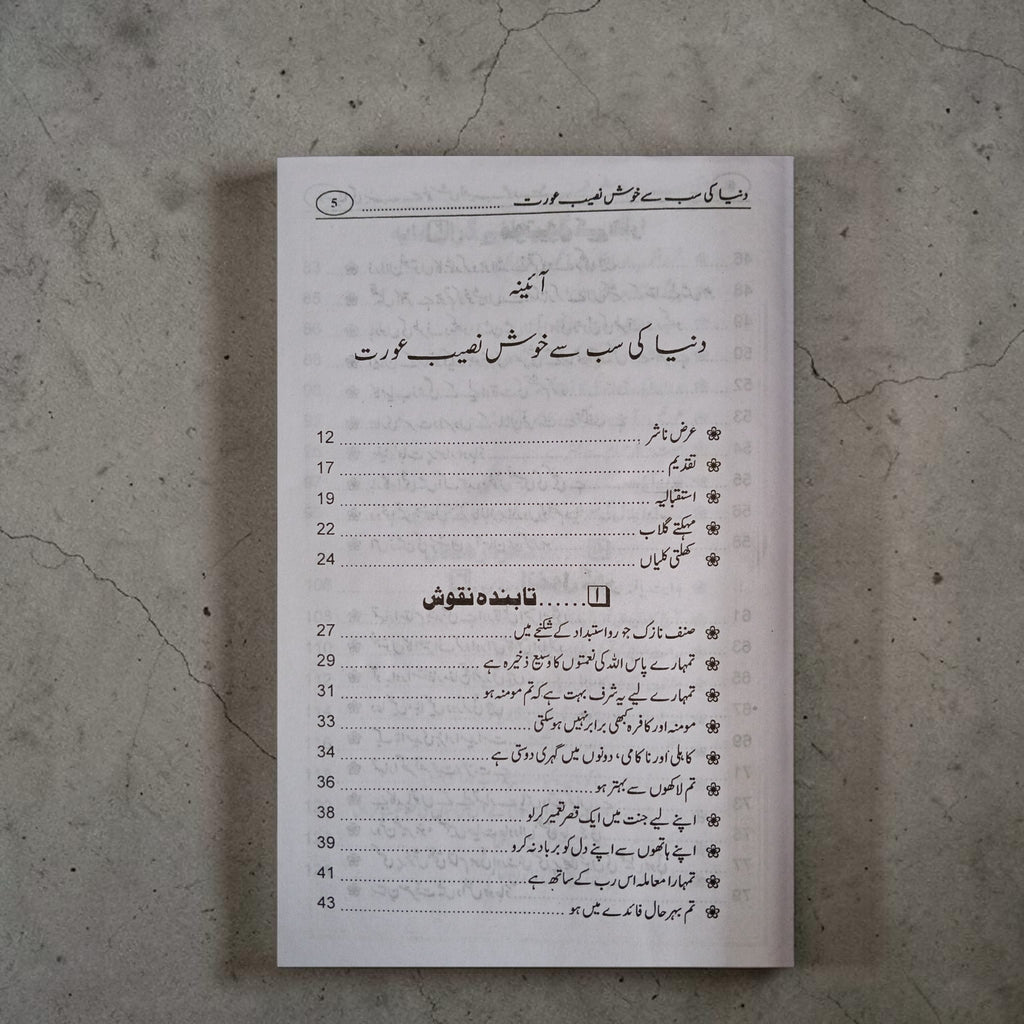 دنیا کی سب سے خوش نصیب عورت ........................ 5
آئینہ
دنیا کی سب سے خوش نصیب عورت
❀ عرض ناشر ........................ 12
❀ تقدیم ........................ 17
❀ استقبالیہ ........................ 19
❀ مہکتے گلاب ........................ 22
❀ کھلتی کلیاں ........................ 24
۱ ...... تابندہ نقوش
❀ صنف نازک جور و استبداد کے شکنجے میں ........................ 27
❀ تمہارے پاس اللہ کی نعمتوں کا وسیع ذخیرہ ہے ........................ 29
❀ تمہارے لیے یہ شرف بہت ہے کہ تم مومنہ ہو ........................ 31
❀ مومنہ اور کافرہ کبھی برابر نہیں ہوسکتی ........................ 33
❀ کاہلی اور ناکامی، دونوں میں گہری دوستی ہے ........................ 34
❀ تم لاکھوں سے بہتر ہو ........................ 36
❀ اپنے لیے جنت میں ایک قصر تعمیر کرلو ........................ 38
❀ اپنے ہاتھوں سے اپنے دل کو برباد نہ کرو ........................ 39
❀ تمہارا معاملہ اس رب کے ساتھ ہے ........................ 41
❀ تم بہرحال فائدے میں ہو ........................ 43